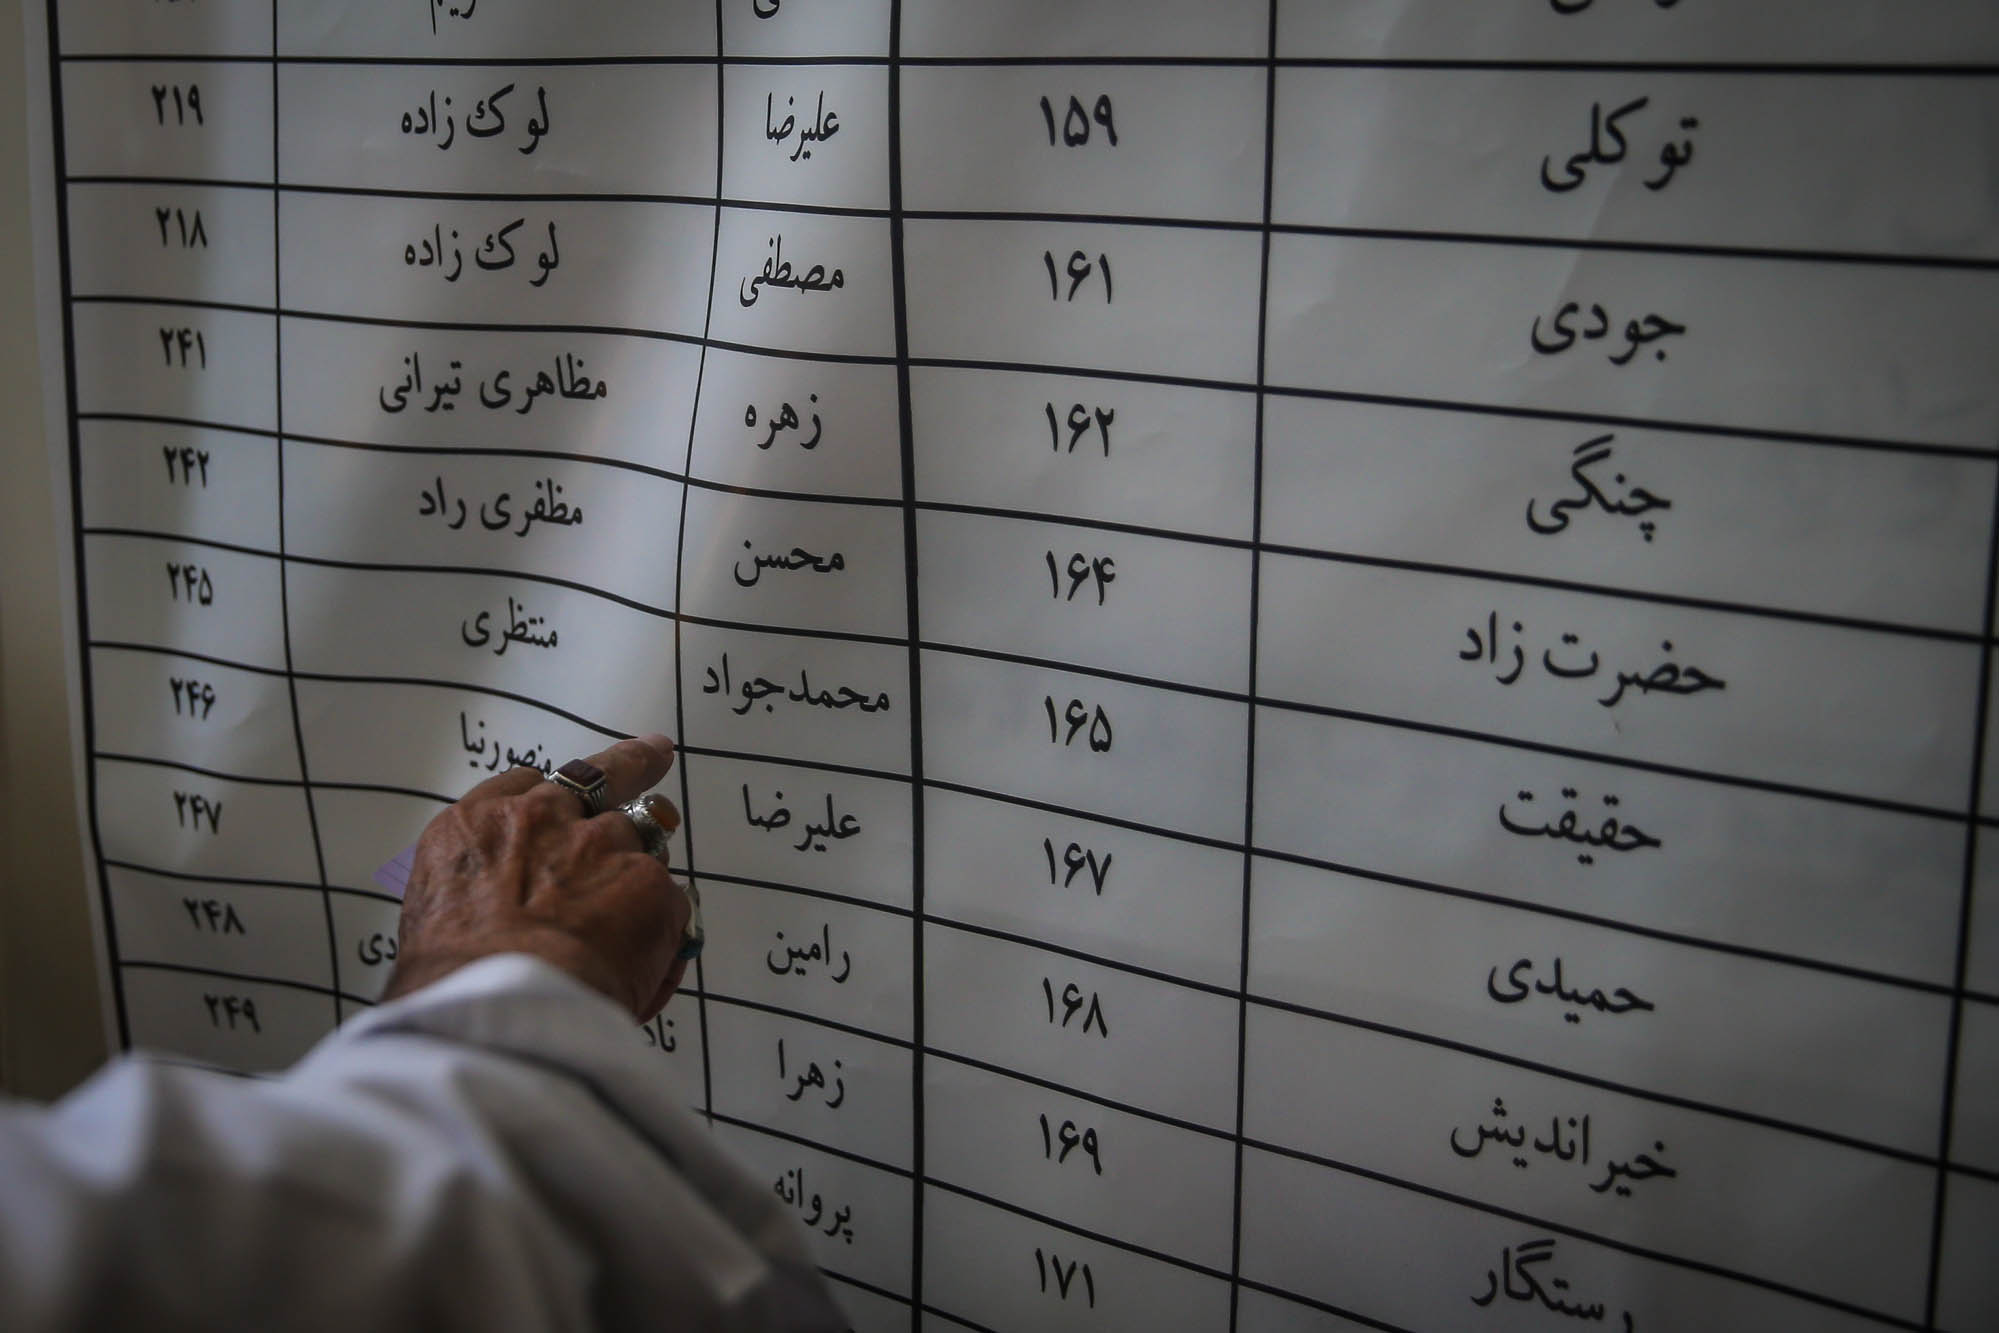 توکلی ۱۵۹ علیرضا لوک زاده ۲۱۹
جودی ۱۶۱ مصطفی لوک زاده ۲۱۸
چنگی ۱۶۲ زهره مظاهری تیرانی ۲۴۱
حضرت زاد ۱۶۴ محسن مظفری راد ۲۴۲
حقیقت ۱۶۵ محمدجواد منتظری ۲۴۵
حمیدی ۱۶۷ علیرضا منصورنیا ۲۴۶
خیراندیش ۱۶۸ رامین ۲۴۷
رستگار ۱۶۹ زهرا ۲۴۸
۱۷۱ پروانه ۲۴۹